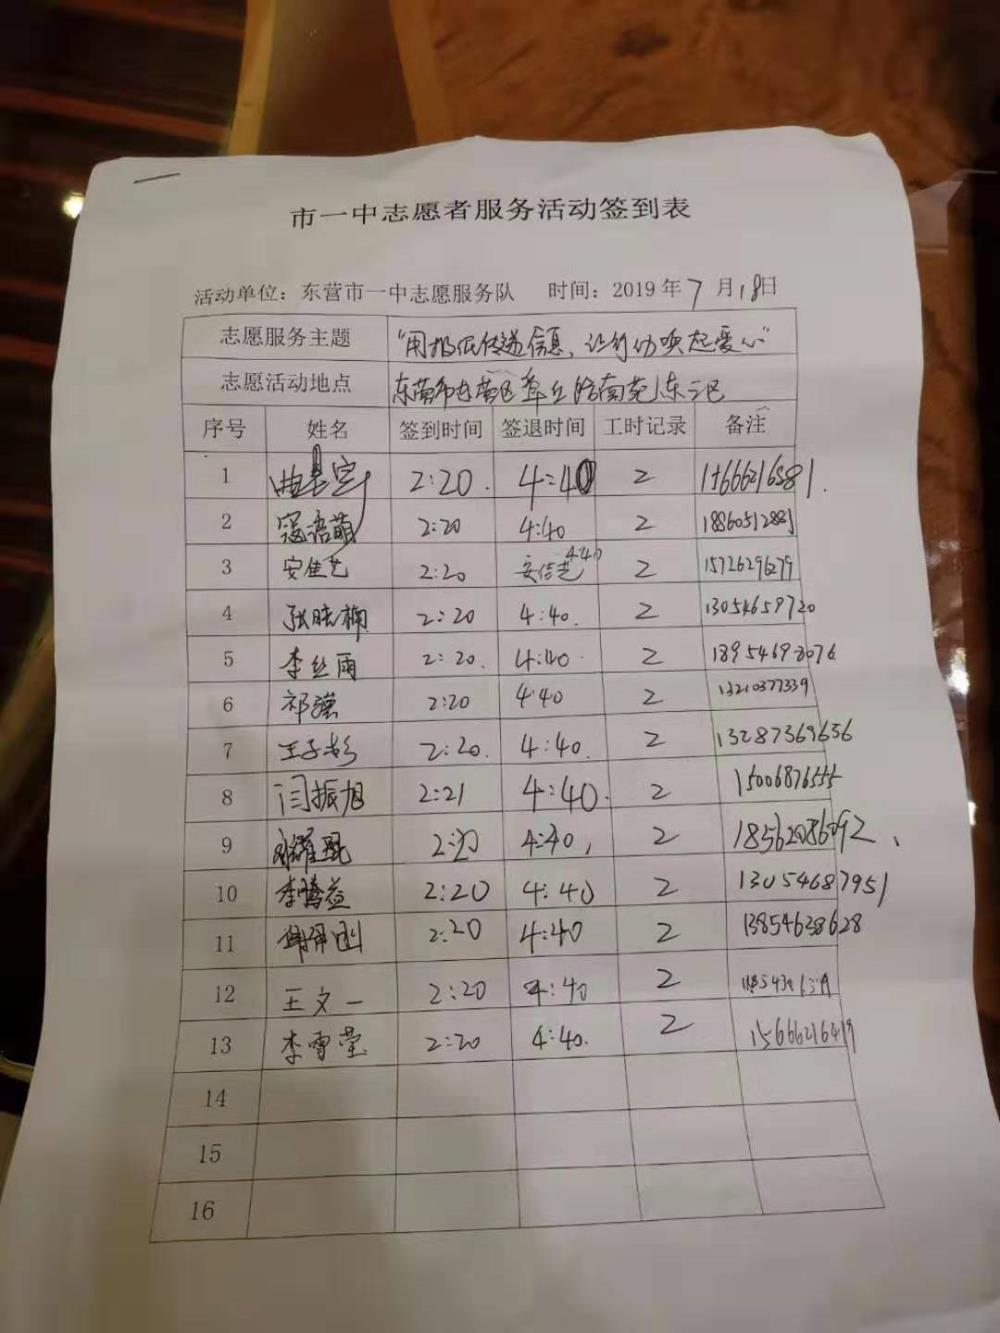 市一中志愿者服务活动签到表
活动单位：东营市一中志愿服务队 时间：2019年7月18日
志愿服务主题 "用报纸传递信息，让行动唤起爱心"
志愿活动地点 东营市东营区 路南 东二区
序号 姓名 签到时间 签退时间 工时记录 备注
1 2:20. 4:40 2
2 寇语萌 2:20 4:40 2
3 安佳艺 2:20 安佳艺 4:40 2 15726296279
4 张晓楠 2:20 4:40. 2 13054659720
5 李丝雨 2:20. 4:40. 2 18954698076
6 祁 2:20 4:40 2 13210377339
7 王子彤 2:20. 4:40. 2 13287369656
8 闫振旭 2:21 4:40. 2 15006876555
9 2:20 4:40, 2 18562086092、
10 李腾益 2:20 4:40 2 13054687951
11 2:20 4:40 2 13854638628
12 王文一 2:20 4:40 2
13 李雪莹 2:20 4:40. 2 15666216419
14
15
16